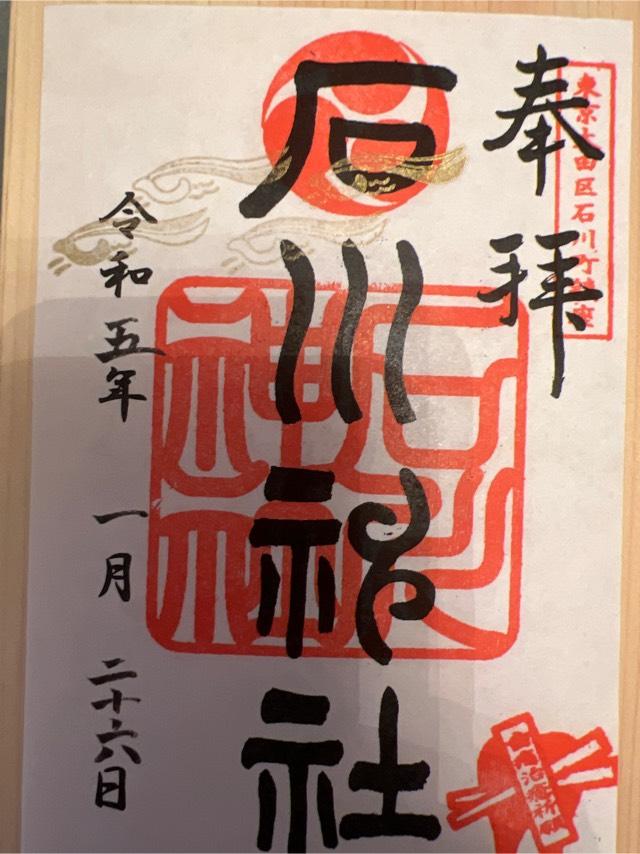 奉拝
東京大田区石川町鎮座
石川神社
令和五年 一月 二十六日
石川神社